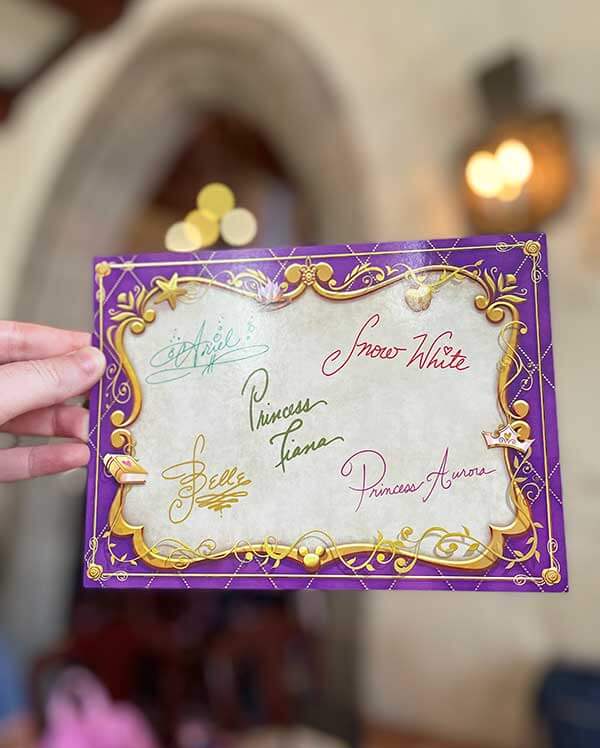 Ariel
Snow White
Princess
Tiana
Belle
Princess Aurora